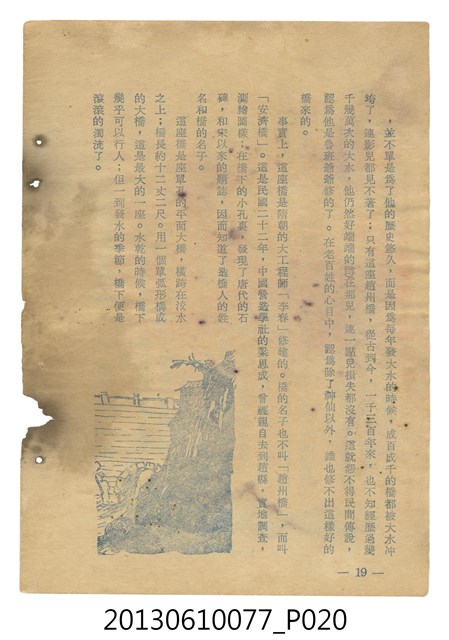 ，並不單是爲了他的歷史悠久，而是因爲每年發大水的時候，成百成千的橋都被大水冲
垮了，連影兒都見不著了；只有這座趙州橋，從古到今，一千三百年來，也不知經歷過幾
千幾萬次的大水，他仍然好端端的跨在那兒，連一點兒損失都沒有。這就怨不得民間傳說，
認爲他是魯班爺爺修的了。在老百姓的心目中，認爲除了神仙以外，誰也修不出這樣好的
橋來的。
事實上，這座橋是隋朝的大工程師「李春」修建的。橋的名子也不叫「趙州橋」，而叫
「安濟橋」。這是民國二十二年，中國營造學社的梁思成，曾經親自去到趙縣，實地調查，
測繪圖樣；在橋下的小孔裏，發現了唐代的石
碑，和宋以來的題跡，因而知道了造橋人的姓
名和橋的名子。
這座橋是座單孔的平面大橋，橫跨在洨水
之上；橋長約十二丈二尺。用一個單弧形構成
的大橋，這是最大的一座。水乾的時候，橋下
幾乎可以行人；但一到發水的季節，橋下便是
滾滾的濁流了。
— 19 —
20130610077_P020